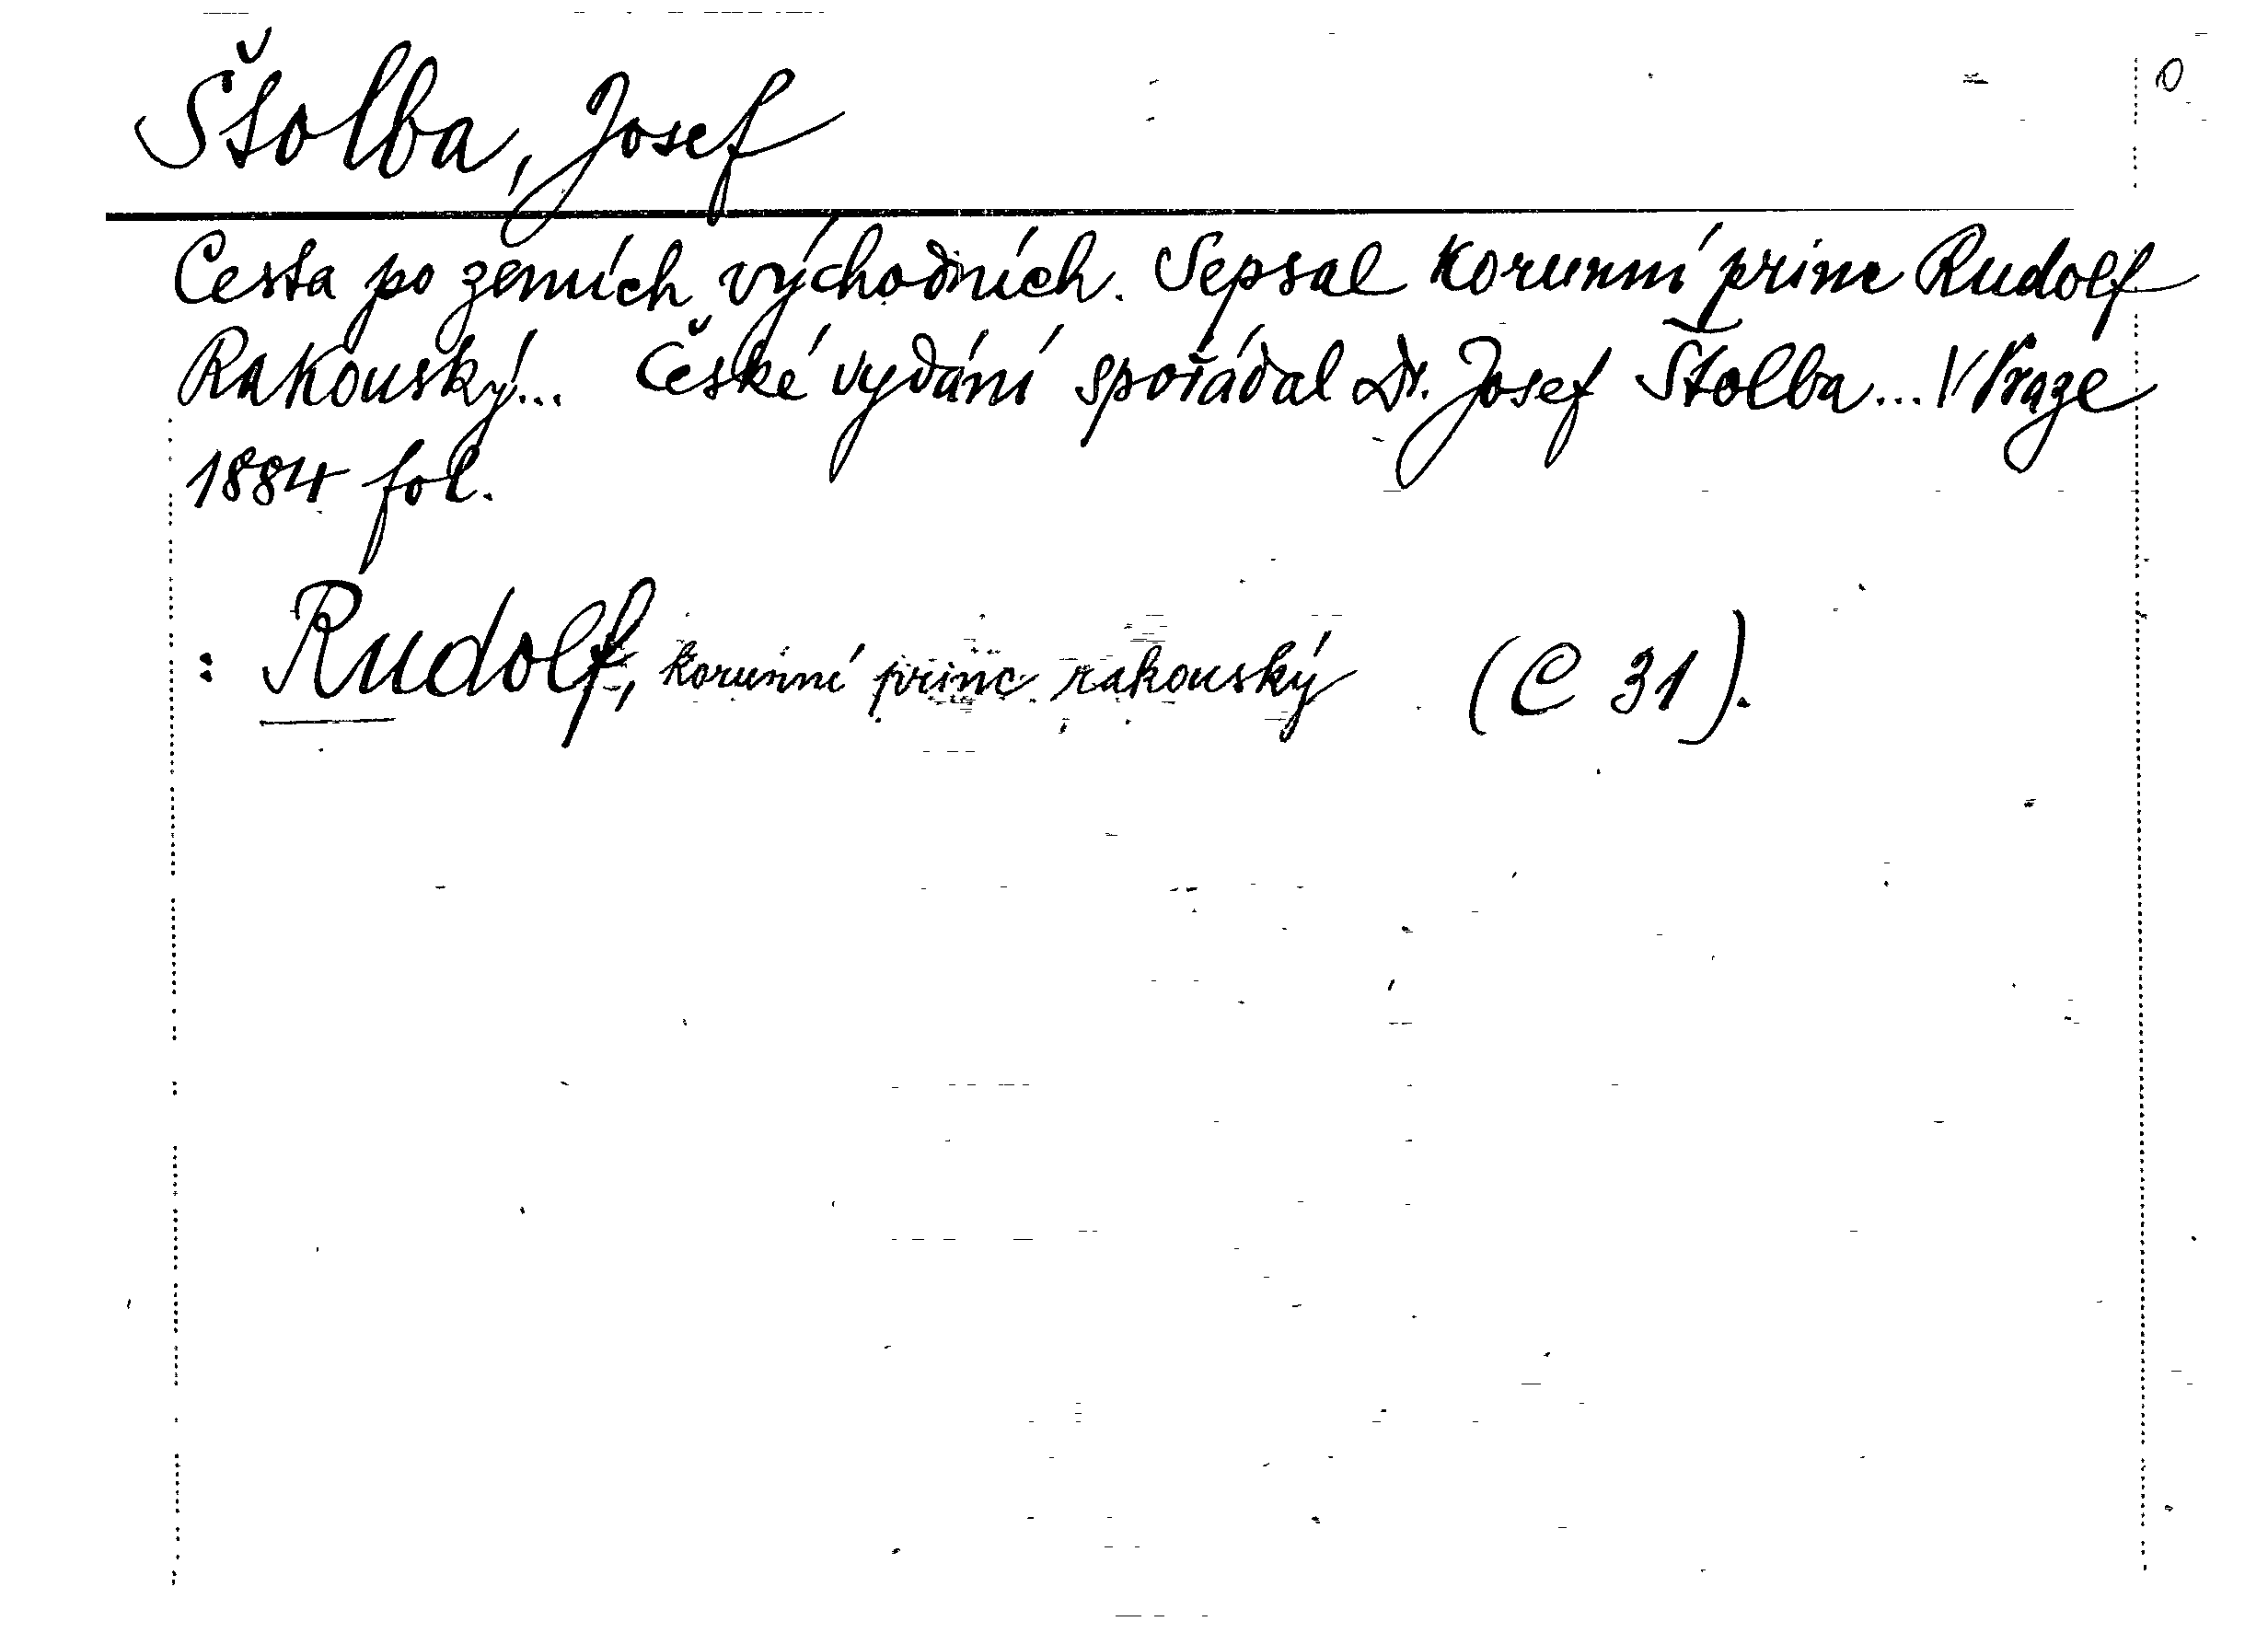 Štolba, Josef
Cesta po zemích východních. Sepsal korunní princ Rudolf
Rakouský... České vydání spořádal Dr. Josef Štolba... V Praze
1884 fol.
: Rudolf, korunní princ rakouský (C 31).